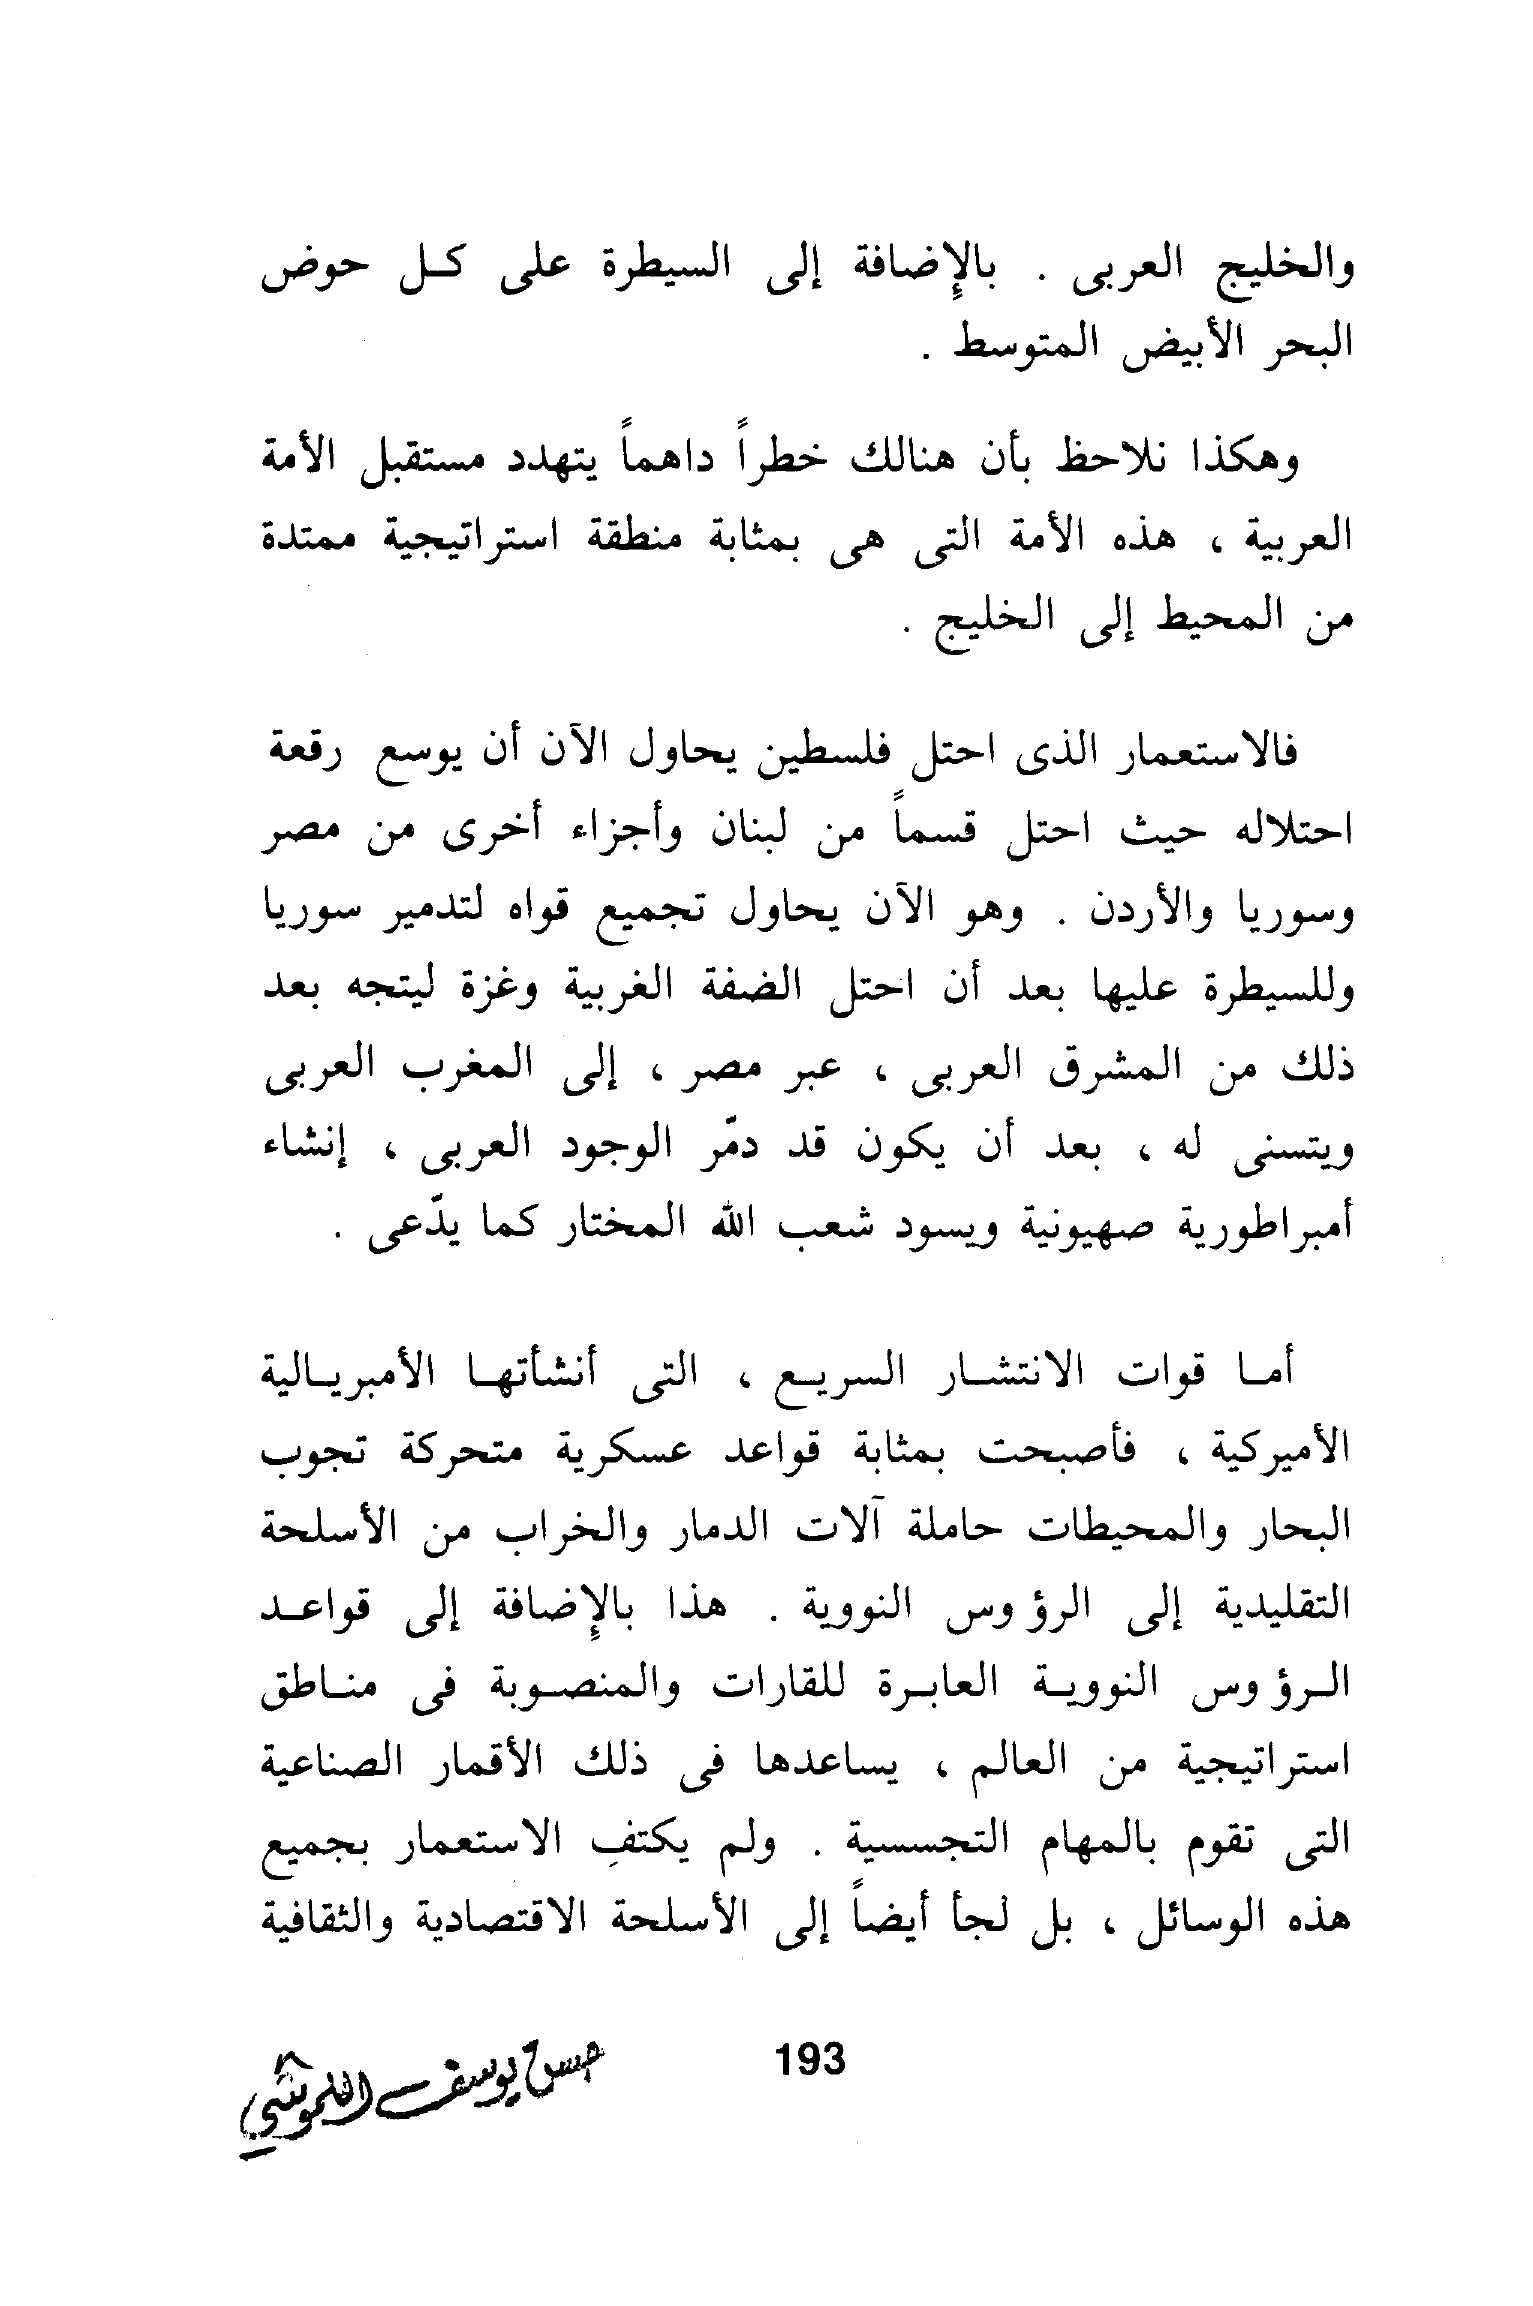 والخليج العربى . بالإضافة إلى السيطرة على كـل حوض
البحر الأبيض المتوسط .
وهكذا نلاحظ بأن هنالك خطراً داهماً يتهدد مستقبل الأمة
العربية ، هذه الأمة التى هى بمثابة منطقة استراتيجية ممتدة
من المحيط إلى الخليج .
فالاستعمار الذى احتل فلسطين يحاول الآن أن يوسع رقعة
احتلاله حيث احتل قسماً من لبنان وأجزاء أخرى من مصر
وسوريا والأردن . وهو الآن يحاول تجميع قواه لتدمير سوريا
وللسيطرة عليها بعد أن احتل الضفة الغربية وغزة ليتجه بعد
ذلك من المشرق العربى ، عبر مصر ، إلى المغرب العربى
ويتسنى له ، بعد أن يكون قد دمّر الوجود العربى ، إنشاء
أمبراطورية صهيونية ويسود شعب الله المختار كما يدّعى .
أمـا قوات الانتشـار السريـع ، التى أنشأتهـا الأمبريـالية
الأميركية ، فأصبحت بمثابة قواعد عسكرية متحركة تجوب
البحار والمحيطات حاملة آلات الدمار والخراب من الأسلحة
التقليدية إلى الرؤوس النووية . هذا بالإضافة إلى قواعـد
الـرؤوس النوويـة العابـرة للقارات والمنصـوبة فى منـاطق
استراتيجية من العالم ، يساعدها فى ذلك الأقمار الصناعية
التى تقوم بالمهام التجسسية . ولم يكتفِ الاستعمار بجميع
هذه الوسائل ، بل لجأ أيضاً إلى الأسلحة الاقتصادية والثقافية
193
حسن يوسف اللموشي